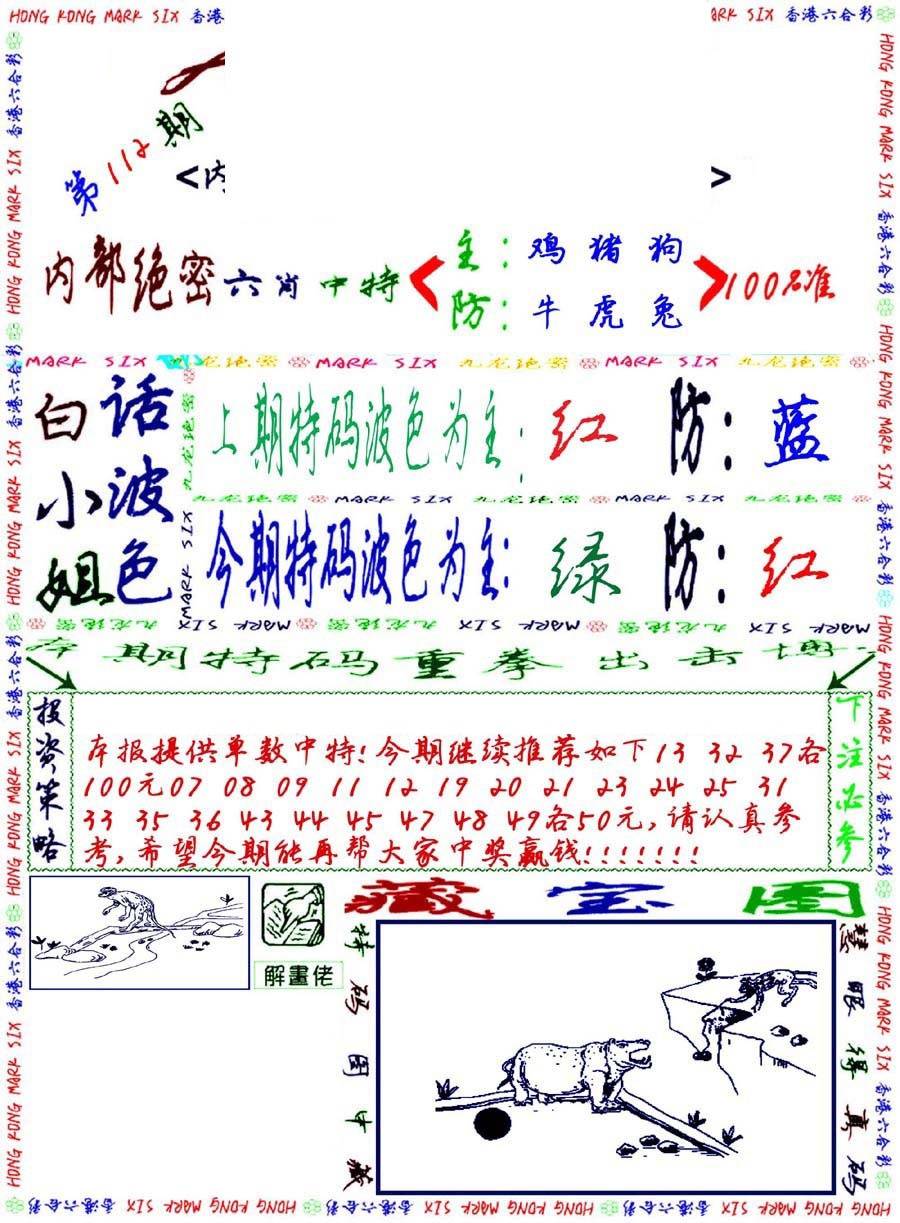 HONG KONG MARK SIX 香港
ARK SIX 香港六合彩
第112期
<内
>
内部绝密六肖中特
主：鸡 猪 狗
防：牛 虎 兔
100%准
MARK SIX 九龙绝密 MARK SIX 九龙绝密 MARK SIX 九龙绝密
白话
小波
姐色
上期特码波色为主：红 防：蓝
九龙绝密 MARK SIX 九龙绝密 MARK SIX 九龙绝密
今期特码波色为主：绿 防：红
九龙绝密 MARK SIX 九龙绝密 MARK SIX 九龙绝密 MARK SIX
本期特码重拳出击
投资策略
本报提供单数中特！今期继续推荐如下13 32 37各
100元07 08 09 11 12 19 20 21 23 24 25 31
33 35 36 43 44 45 47 48 49各50元，请认真参
考，希望今期能再帮大家中奖赢钱！！！！！！！
下注必参
解畫佬
藏宝图
特码图中藏
慧眼得真码
HONG KONG MARK SIX 香港六合彩